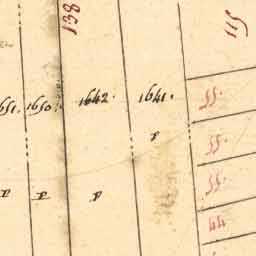 138
115
1651. 1650. 1642. 1641.
55.
P
55.
55.
P P P
44